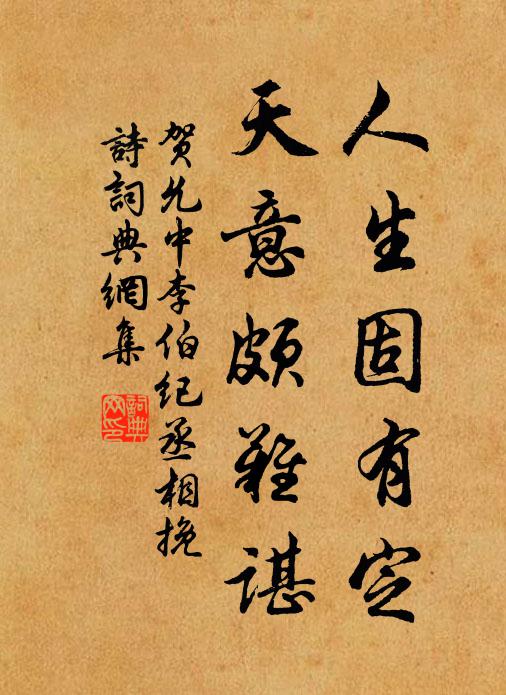 人生固有定
天意頗難諶
賀允中李伯紀丞相挽
詩詞典網集
詞典网印